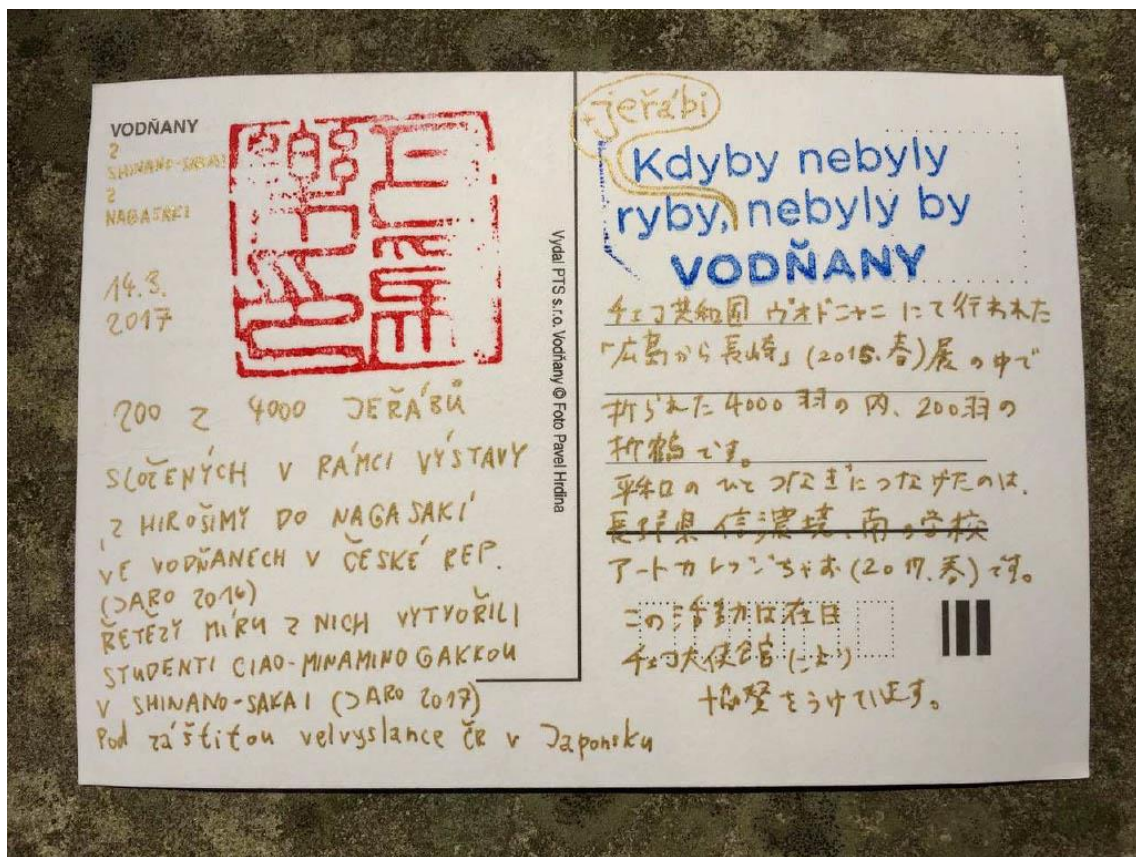 VODŇANY
2
SHINANO-SAKAI
2
NAGASAKI
14.3.
2017
200 Z 4000 JEŘÁBŮ
SLOŽENÝCH V RÁMCI VÝSTAVY
„Z HIROŠIMY DO NAGASAKI
VE VODŇANECH V ČESKÉ REP.
(JARO 2016)
ŘETĚZY MÍRU Z NICH VYTVOŘILI
STUDENTI CIAO-MINAMINO GAKKOU
V SHINANO-SAKAI (JARO 2017)
Pod záštitou velvyslance ČR v Japonsku
Vydal PTS s.r.o. Vodňany © Foto Pavel Hrdina
+jeřábi
Kdyby nebyly
ryby, nebyly by
VODŇANY
チェコ共和国 ヴォドニャニ にて行われた
「広島から長崎」(2015.春)展の中で
折られた4000羽の内、200羽の
折鶴です。
平和のひとつなぎにつなげたのは、
長野県信濃境、南の学校
アートカレッジちゃお(2017.春)です。
この活動は在日
チェコ大使館により
協賛をうけています。